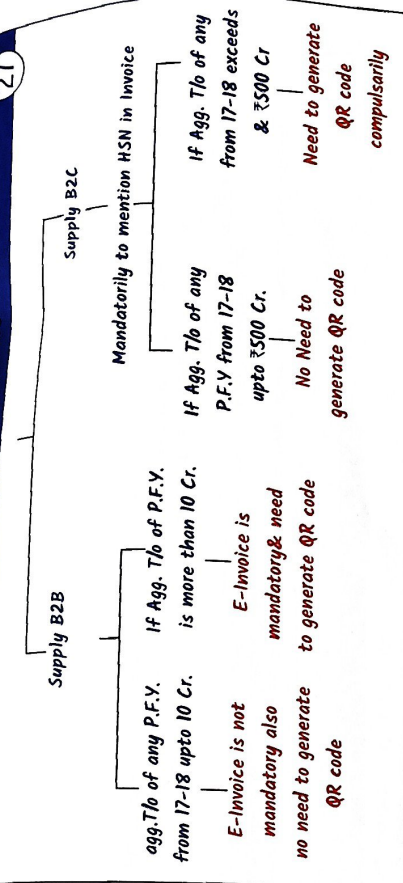 21
Supply B2B
agg.T/o of any P.F.Y.
from 17-18 upto 10 Cr.
E-Invoice is not
mandatory also
no need to generate
QR code
If Agg. T/o of P.F.Y.
is more than 10 Cr.
E-Invoice is
mandatory& need
to generate QR code
Supply B2C
Mandatorily to mention HSN in Invoice
If Agg. T/o of any
P.F.Y from 17-18
upto ₹500 Cr.
No Need to
generate QR code
If Agg. T/o of any
from 17-18 exceeds
& ₹500 Cr
Need to generate
QR code
compulsarily